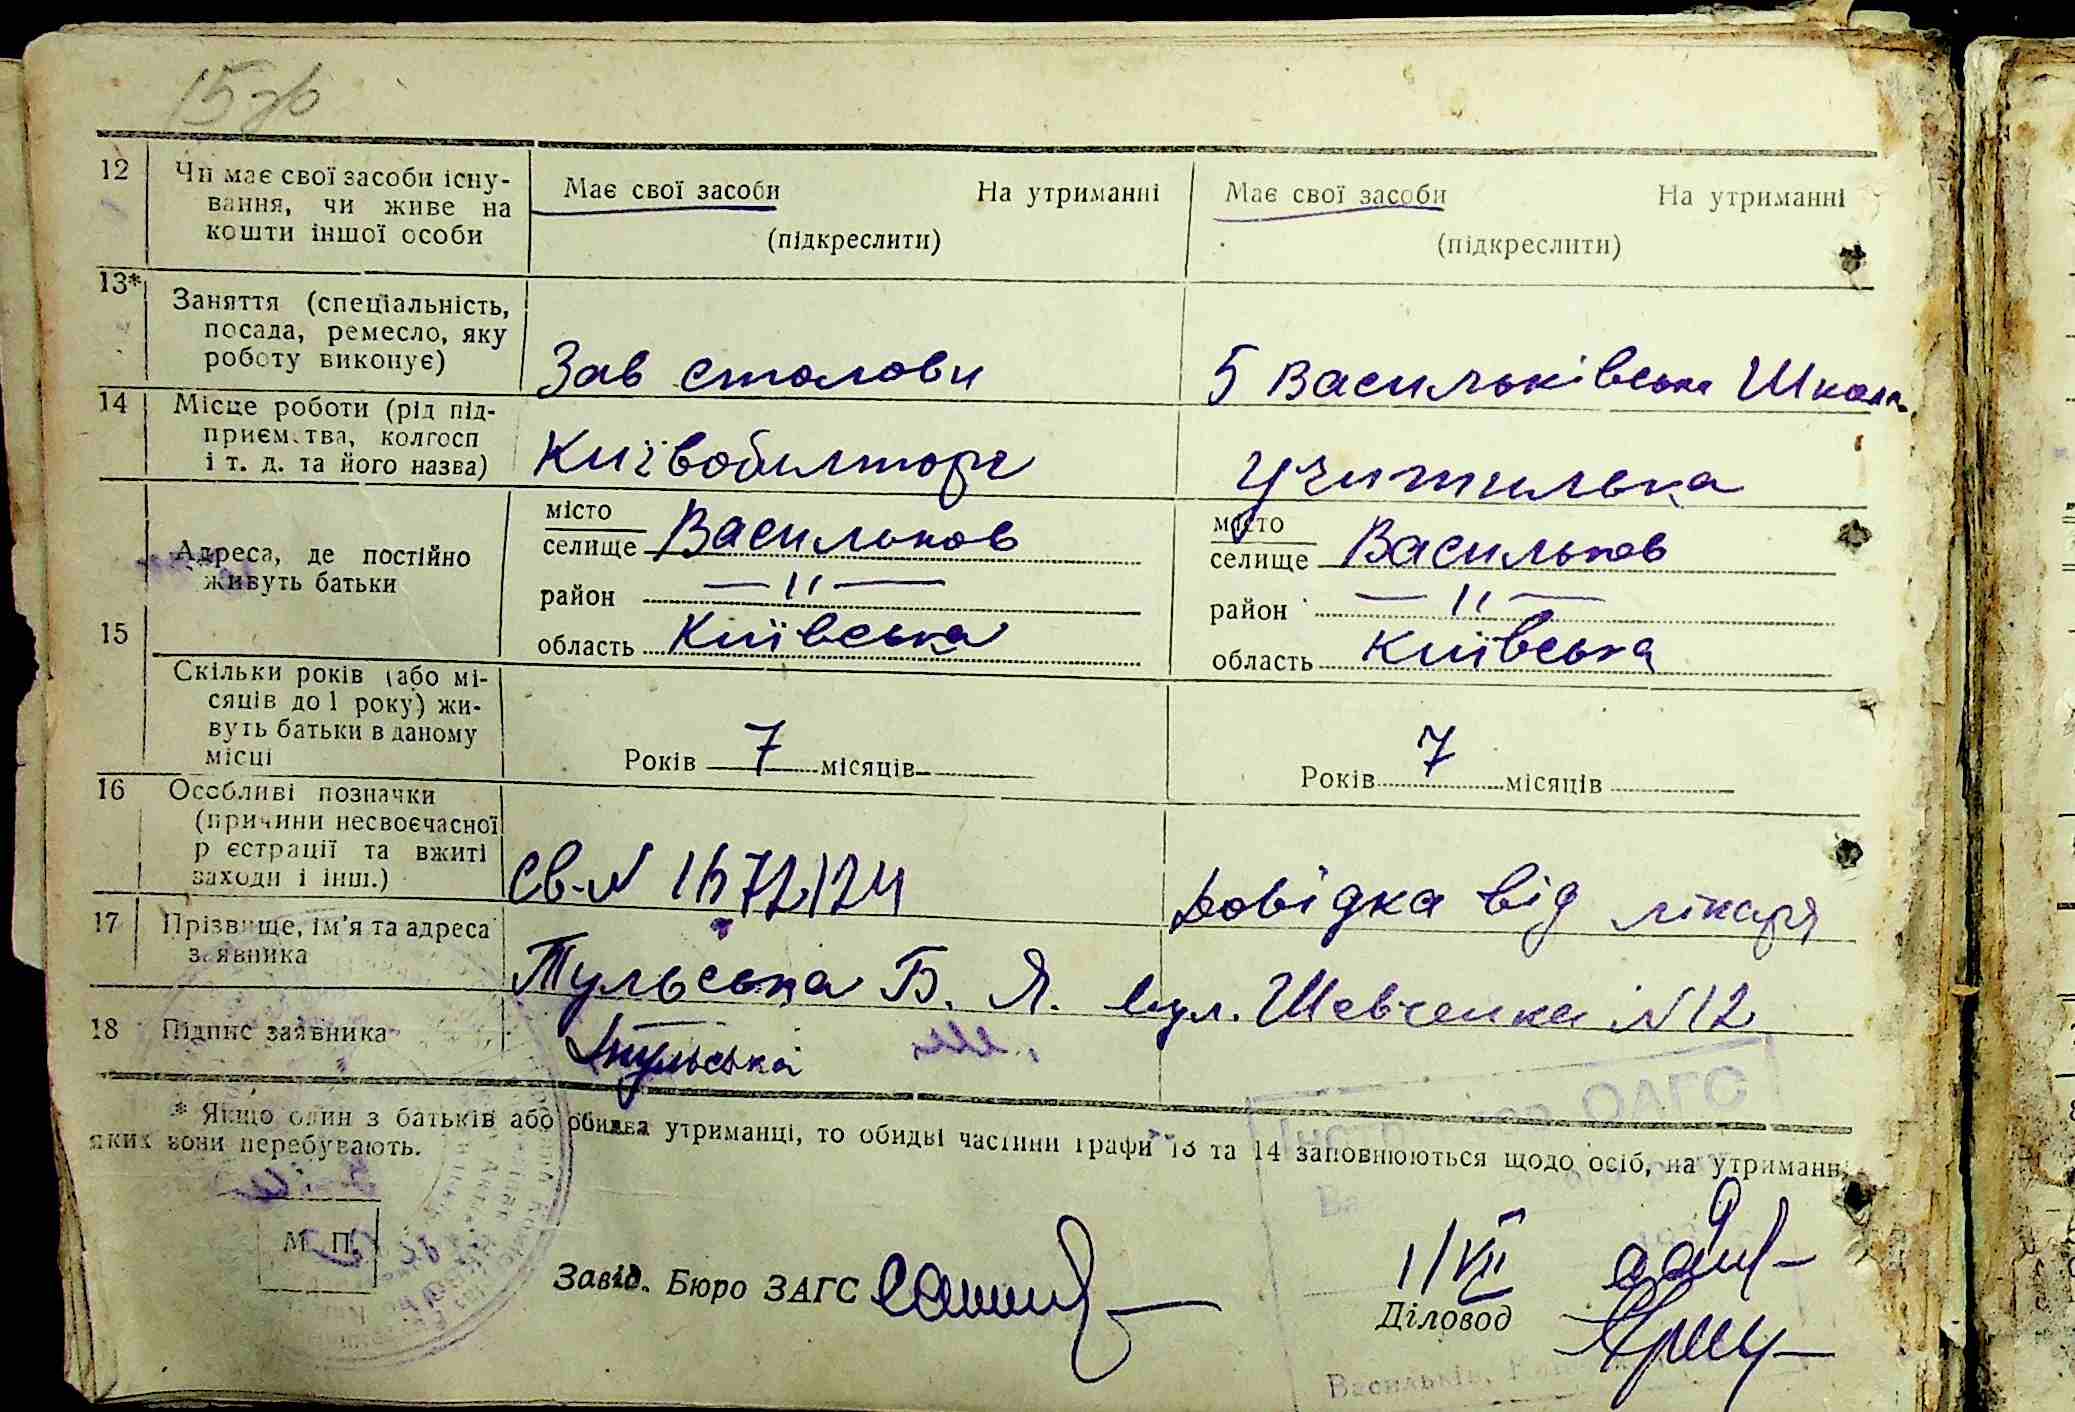 15 зв
12 Чи має свої засоби існу-
вання, чи живе на
кошти іншої особи
Має свої засоби На утриманні
(підкреслити)
Має свої засоби На утриманні
(підкреслити)
13* Заняття (спеціальність,
посада, ремесло, яку
роботу виконує)
Зав столови
5 Васильківська Школа
14 Місце роботи (рід під-
приємства, колгосп
і т. д. та його назва)
Київоблторг
учителька
15 Адреса, де постійно
живуть батьки
місто
селище Васильков
район —〃—
область Київська
місто
селище Васильков
район —〃—
область Київська
Скільки років (або мі-
сяців до 1 року) жи-
вуть батьки в даному
місці
Років 7 місяців
Років 7 місяців
16 Особливі позначки
(причини несвоєчасної
р єстрації та вжиті
заходи і інш.)
Св-N
Довідка від лікаря
17 Прізвище, ім'я та адреса
заявника
Тульська Б. Я. вул. Шевченка N 12
18 Підпис заявника
Тульська
* Якщо один з батьків або обидва утриманці, то обидві частини графи 13 та 14 заповнюються щодо осіб, на утриманні
яких вони перебувають.
М. П.
Завід. Бюро ЗАГС
1/VII
Діловод
ОАГС
Васильків,